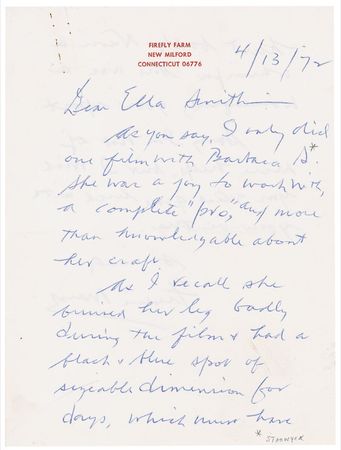 FIREFLY FARM
NEW MILFORD
CONNECTICUT 06776
4/13/72
Dear Ella Smith —
As you say, I only did
one film with Barbara S.*
She was a joy to work with,
a complete "pro," and more
than knowledgable about
her craft.
As I recall she
bruised her leg badly
during the film & had a
black & blue spot of
sizeable dimension for
days, which must have
* STANWYCK